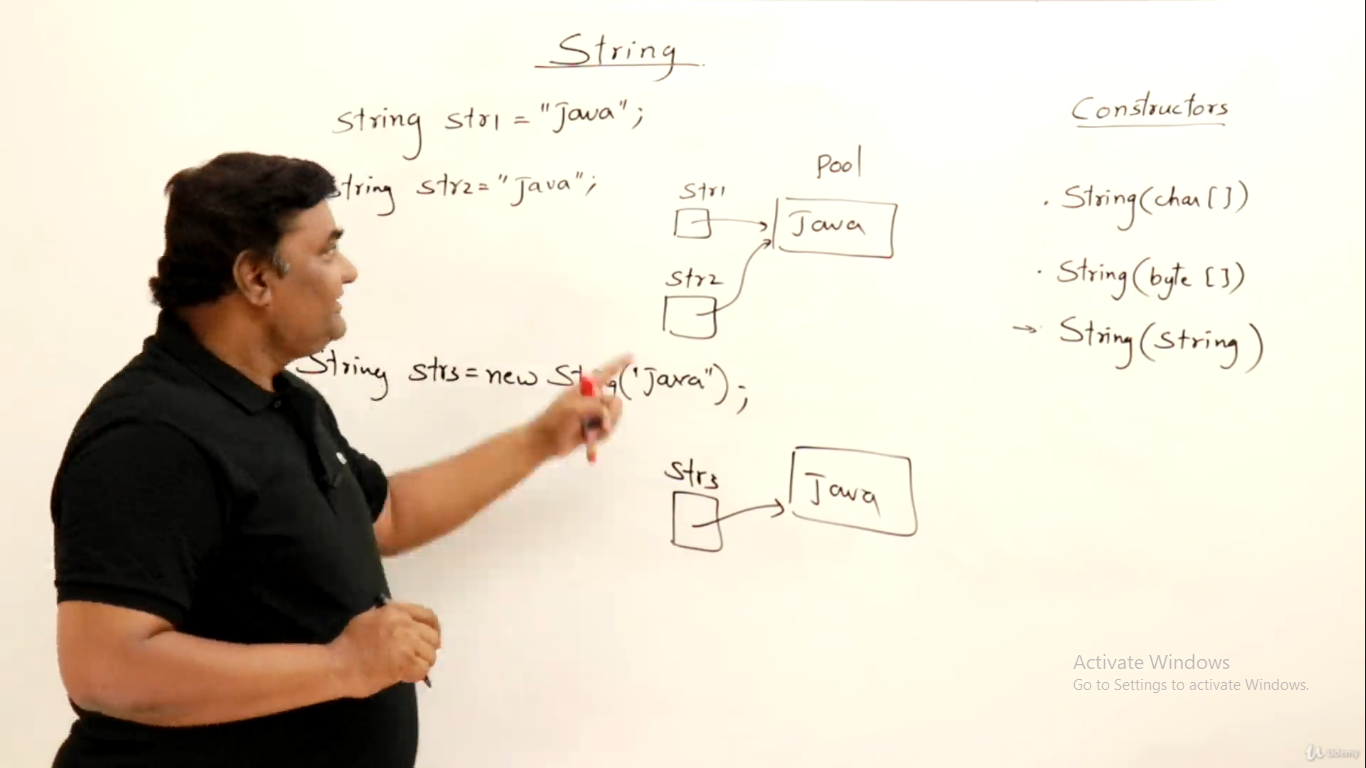 String
string str1 = "Java";
string str2 = "Java";
Pool
str1
Java
str2
String str3 = new String('Java");
str3
Java
Constructors
. String(char [])
. String(byte [])
→ String(string)
Activate Windows
Go to Settings to activate Windows.
Udemy